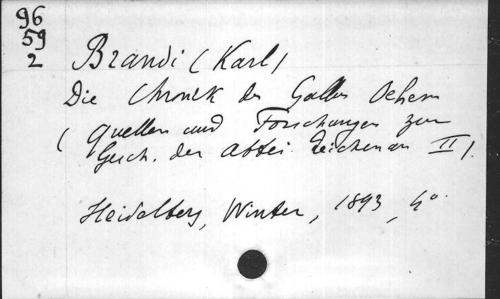 96
59
2
Brandi (Karl)
Die Chronik des Gallus Öhem
(Quellen und Forschungen zur
Gesch. der Abtei Reichenau II).
Heidelberg, Winter, 1893, 4°.